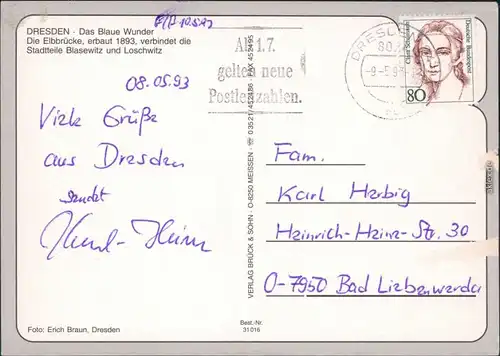 DRESDEN · Das Blaue Wunder
Die Elbbrücke, erbaut 1893, verbindet die
Stadtteile Blasewitz und Loschwitz
08.05.93
Viele Grüße
aus Dresden
sendet
Foto: Erich Braun, Dresden
Ab 1.7.
gelten neue
Postleitzahlen.
VERLAG BRÜCK & SOHN · O-8250 MEISSEN · ☎ 03521/452436 · FAX 453495
Best.-Nr.
31 016
DRESDEN
Clara Schumann
Deutsche Bundespost
80
Fam.
Karl Herbig
Heinrich-Heine-Str. 30
O-7950 Bad Liebenwerda